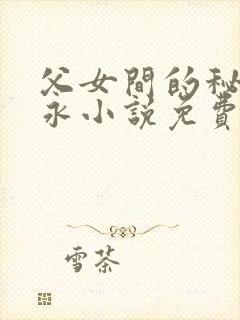 父女間的秘
永小說免費
雪茶